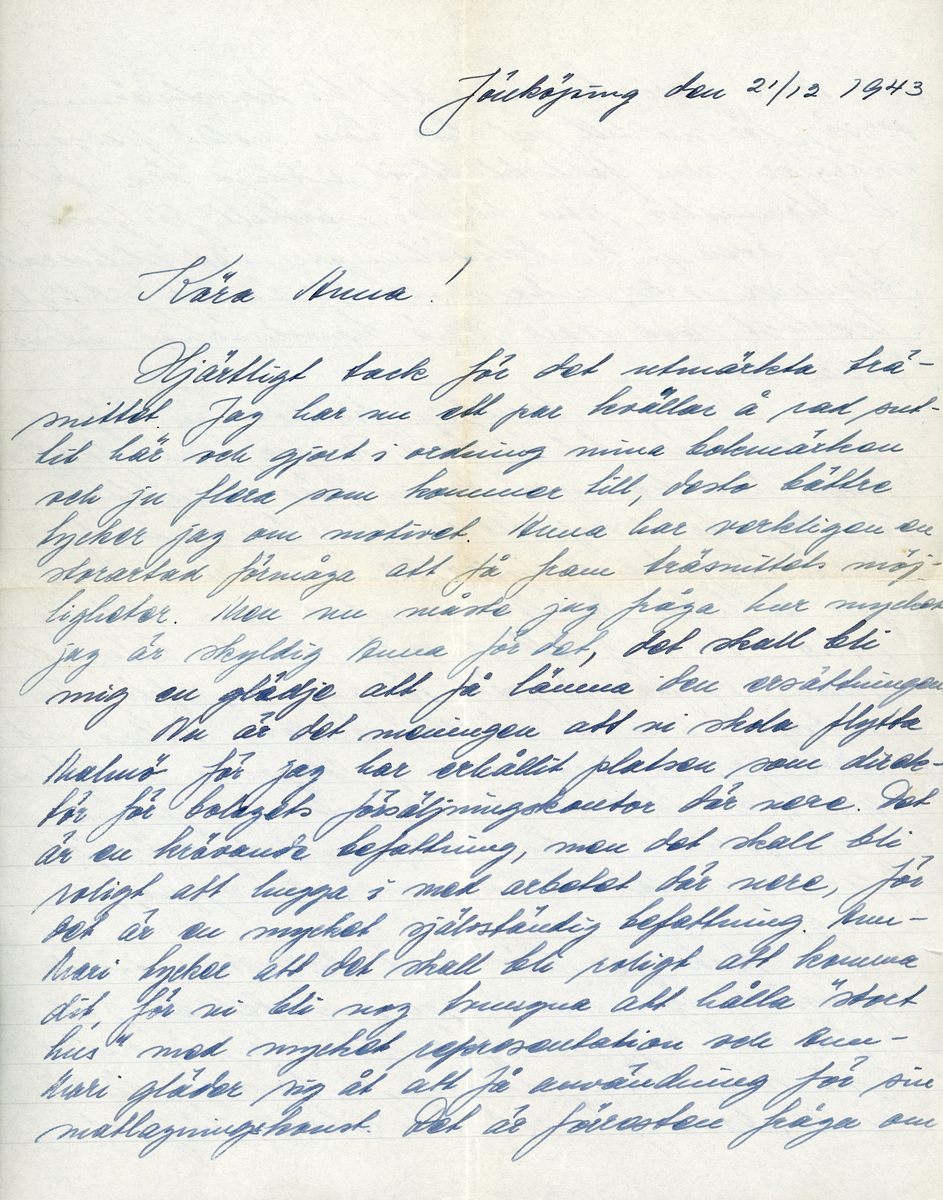 Jönköping den 21/12 1943
Kära Anna!
Hjärtligt tack för det utmärkta trä-
snittet. Jag har nu ett par kvällar å rad sut-
tit här och gjort i ordning mina bokmärken
och ju flera som kommer till, desto bättre
tycker jag om motivet. Anna har verkligen en
storartad förmåga att få fram träsnittets möj-
ligheter. Men nu måste jag fråga hur mycket
jag är skyldig Anna för det, det skall bli
mig en glädje att få lämna den ersättningen
Nu är det meningen att vi skola flytta
Malmö för jag har erhållit platsen som direk-
tör för bolagets försäljningskontor där nere. Det
är en krävande befattning, men det skall bli
roligt att hugga i med arbetet där nere, för
det är en mycket självständig befattning. Ann-
Mari tycker att det skall bli roligt att komma
dit, för vi bli nog tvungna att hålla "stort
hus" med mycket representation och Ann-
Mari gläder sig åt att få användning för sin
matlagningskonst. Det är förresten fråga om